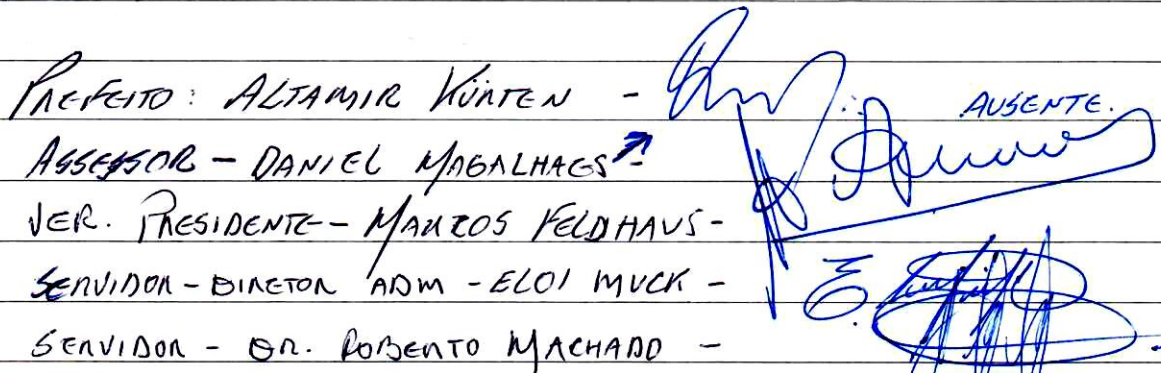 PREFEITO: ALTAMIR KÜRTEN - AUSENTE.
ASSESSOR - DANIEL MAGALHAES -
VER. PRESIDENTE - MARCOS FELDHAUS -
SERVIDOR - DIRETOR ADM - ELOI MUCK -
SERVIDOR - DR. ROBERTO MACHADO -